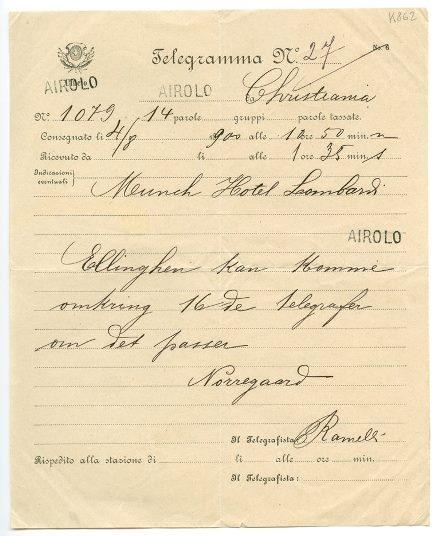 K862
Telegramma N.° 27
No. 6
AIROLO
AIROLO
Christiania
N.° 1079 14 parole gruppi parole tassate.
Consegnato li 4/8 1900 alle 12 ore 50 min. n
Ricevuto da li alle 1 ore 35 min. s
Indicazioni
eventuali
Munch Hotel Lombardi
AIROLO
Ellinghen kan komme
omkring 16 de telegrafer
om det passer
Norregaard
Il Telegrafista: Ramelli
Rispedito alla stazione di li alle ore min.
Il Telegrafista: